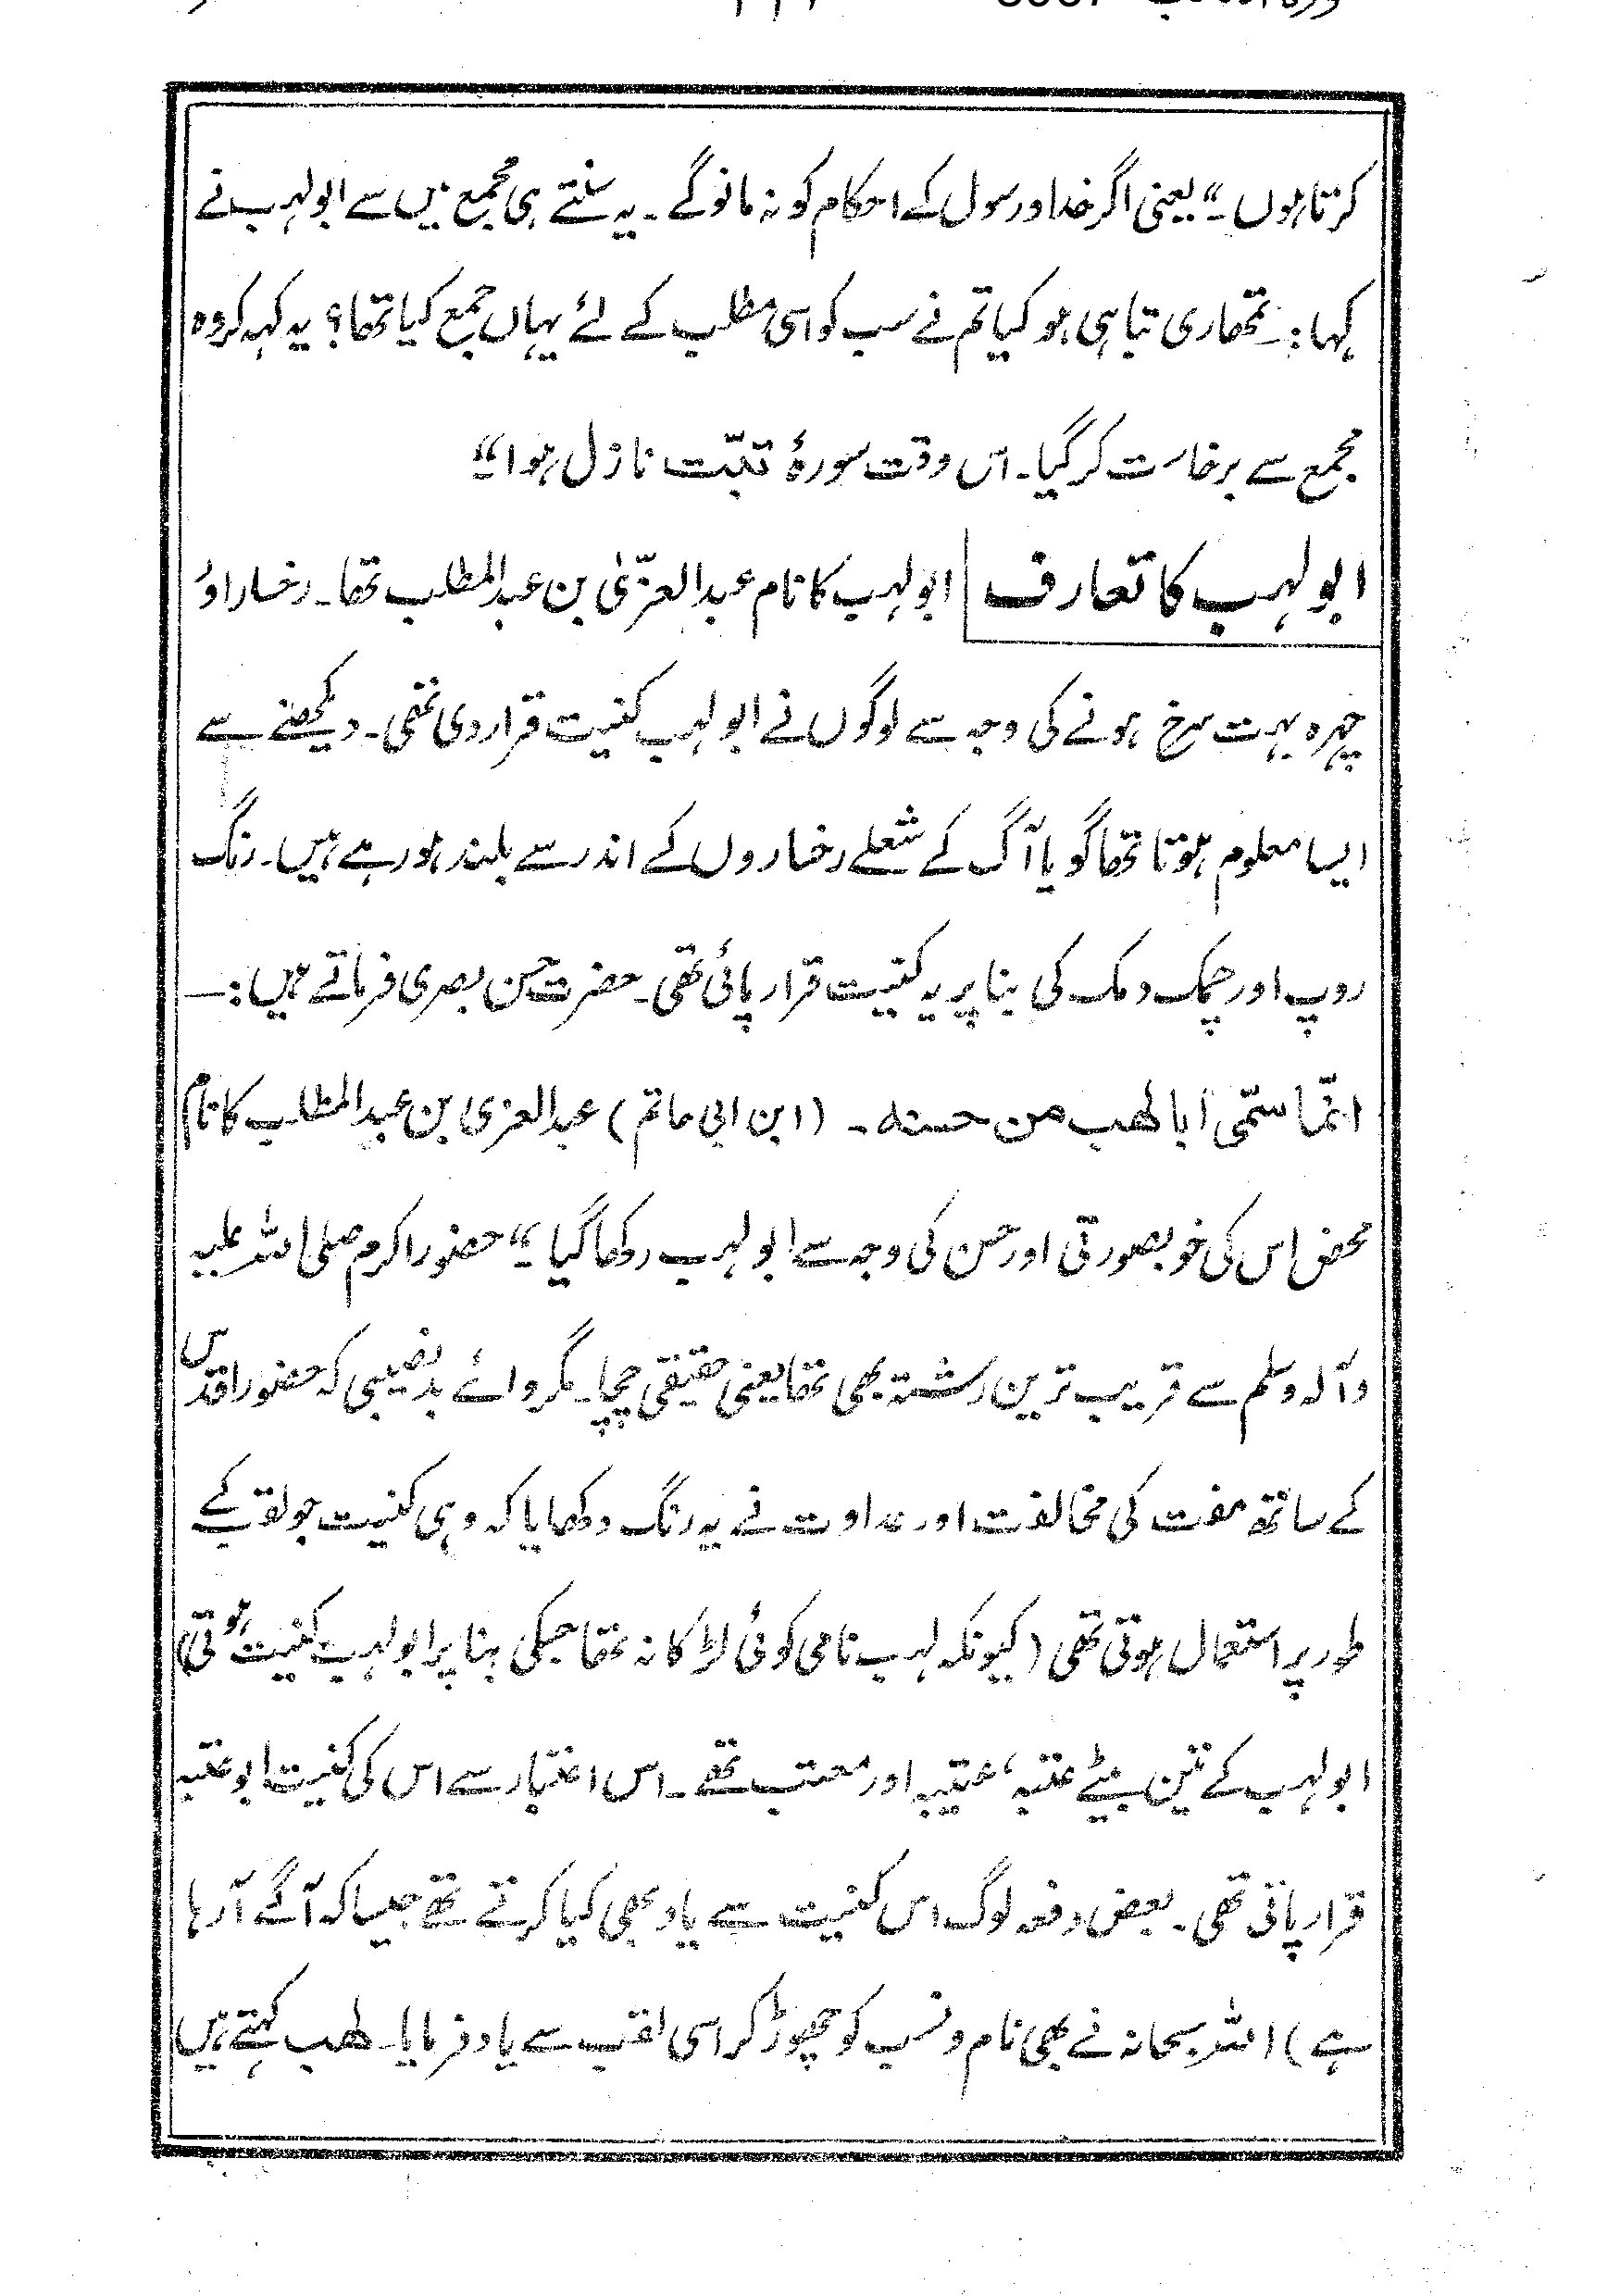 کرتا ہوں۔“ یعنی اگر خدا و رسول کے احکام کو نہ مانو گے۔ یہ سنتے ہی مجمع میں سے ابولہب نے
کہا:۔ تمھاری تباہی ہو کیا تم نے سب کو اسی مطلب کے لئے یہاں جمع کیا تھا؟ یہ کہہ کر وہ
مجمع سے برخاست کر گیا۔ اس وقت سورۂ تبّت نازل ہوا“
ابولہب کا تعارف ابولہب کا نام عبدالعزّیٰ بن عبدالمطلب تھا۔ رخسار اور
چہرہ بہت سرخ ہونے کی وجہ سے لوگوں نے ابولہب کنیت قرار دی تھی۔ دیکھنے سے
ایسا معلوم ہوتا تھا گویا آگ کے شعلے رخساروں کے اندر سے بلند ہو رہے ہیں۔ رنگ
روپ اور چمک دمک کی بنا پر یہ کنیت قرار پائی تھی۔ حضرت حسن بصری فرماتے ہیں:۔
انّما سمّی أبا لھب من حسنه۔ (ابن ابی حاتم) عبدالعزی بن عبدالمطلب کا نام
محض اس کی خوبصورتی اور حسن کی وجہ سے ابولہب رکھا گیا۔“ حضور اکرم صلی اللہ علیہ
وآلہ وسلم سے قریب ترین رشتہ بھی تھا یعنی حقیقی چچا۔ مگر وائے بدنصیبی کہ حضور اقدس
کے ساتھ مفت کی مخالفت اور عداوت نے یہ رنگ دکھایا کہ وہی کنیت جو لقب کے
طور پر استعمال ہوتی تھی (کیونکہ لہب نامی کوئی لڑکا نہ تھا جسکی بنا پر ابولہب کنیت ہوتی)
ابولہب کے تین بیٹے عتبہ، عتیبہ اور معتب تھے۔ اس اعتبار سے اس کی کنیت ابو عتبہ
قرار پاتی تھی۔ بعض دفعہ لوگ اس کنیت سے یاد بھی کیا کرتے تھے جیسا کہ آگے آ رہا
ہے) اللہ سبحانہ نے بھی نام و نسب کو چھوڑ کر اسی لقب سے یاد فرمایا۔ لھب کہتے ہیں